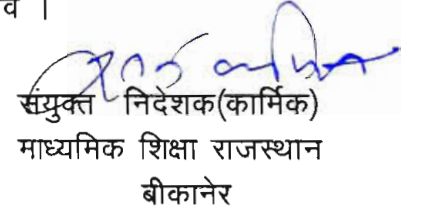 व ।
संयुक्त निदेशक(कार्मिक)
माध्यमिक शिक्षा राजस्थान
बीकानेर